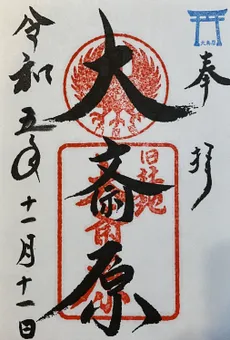 奉拝
大斎原
旧社地
令和五年十一月十一日
大斎原